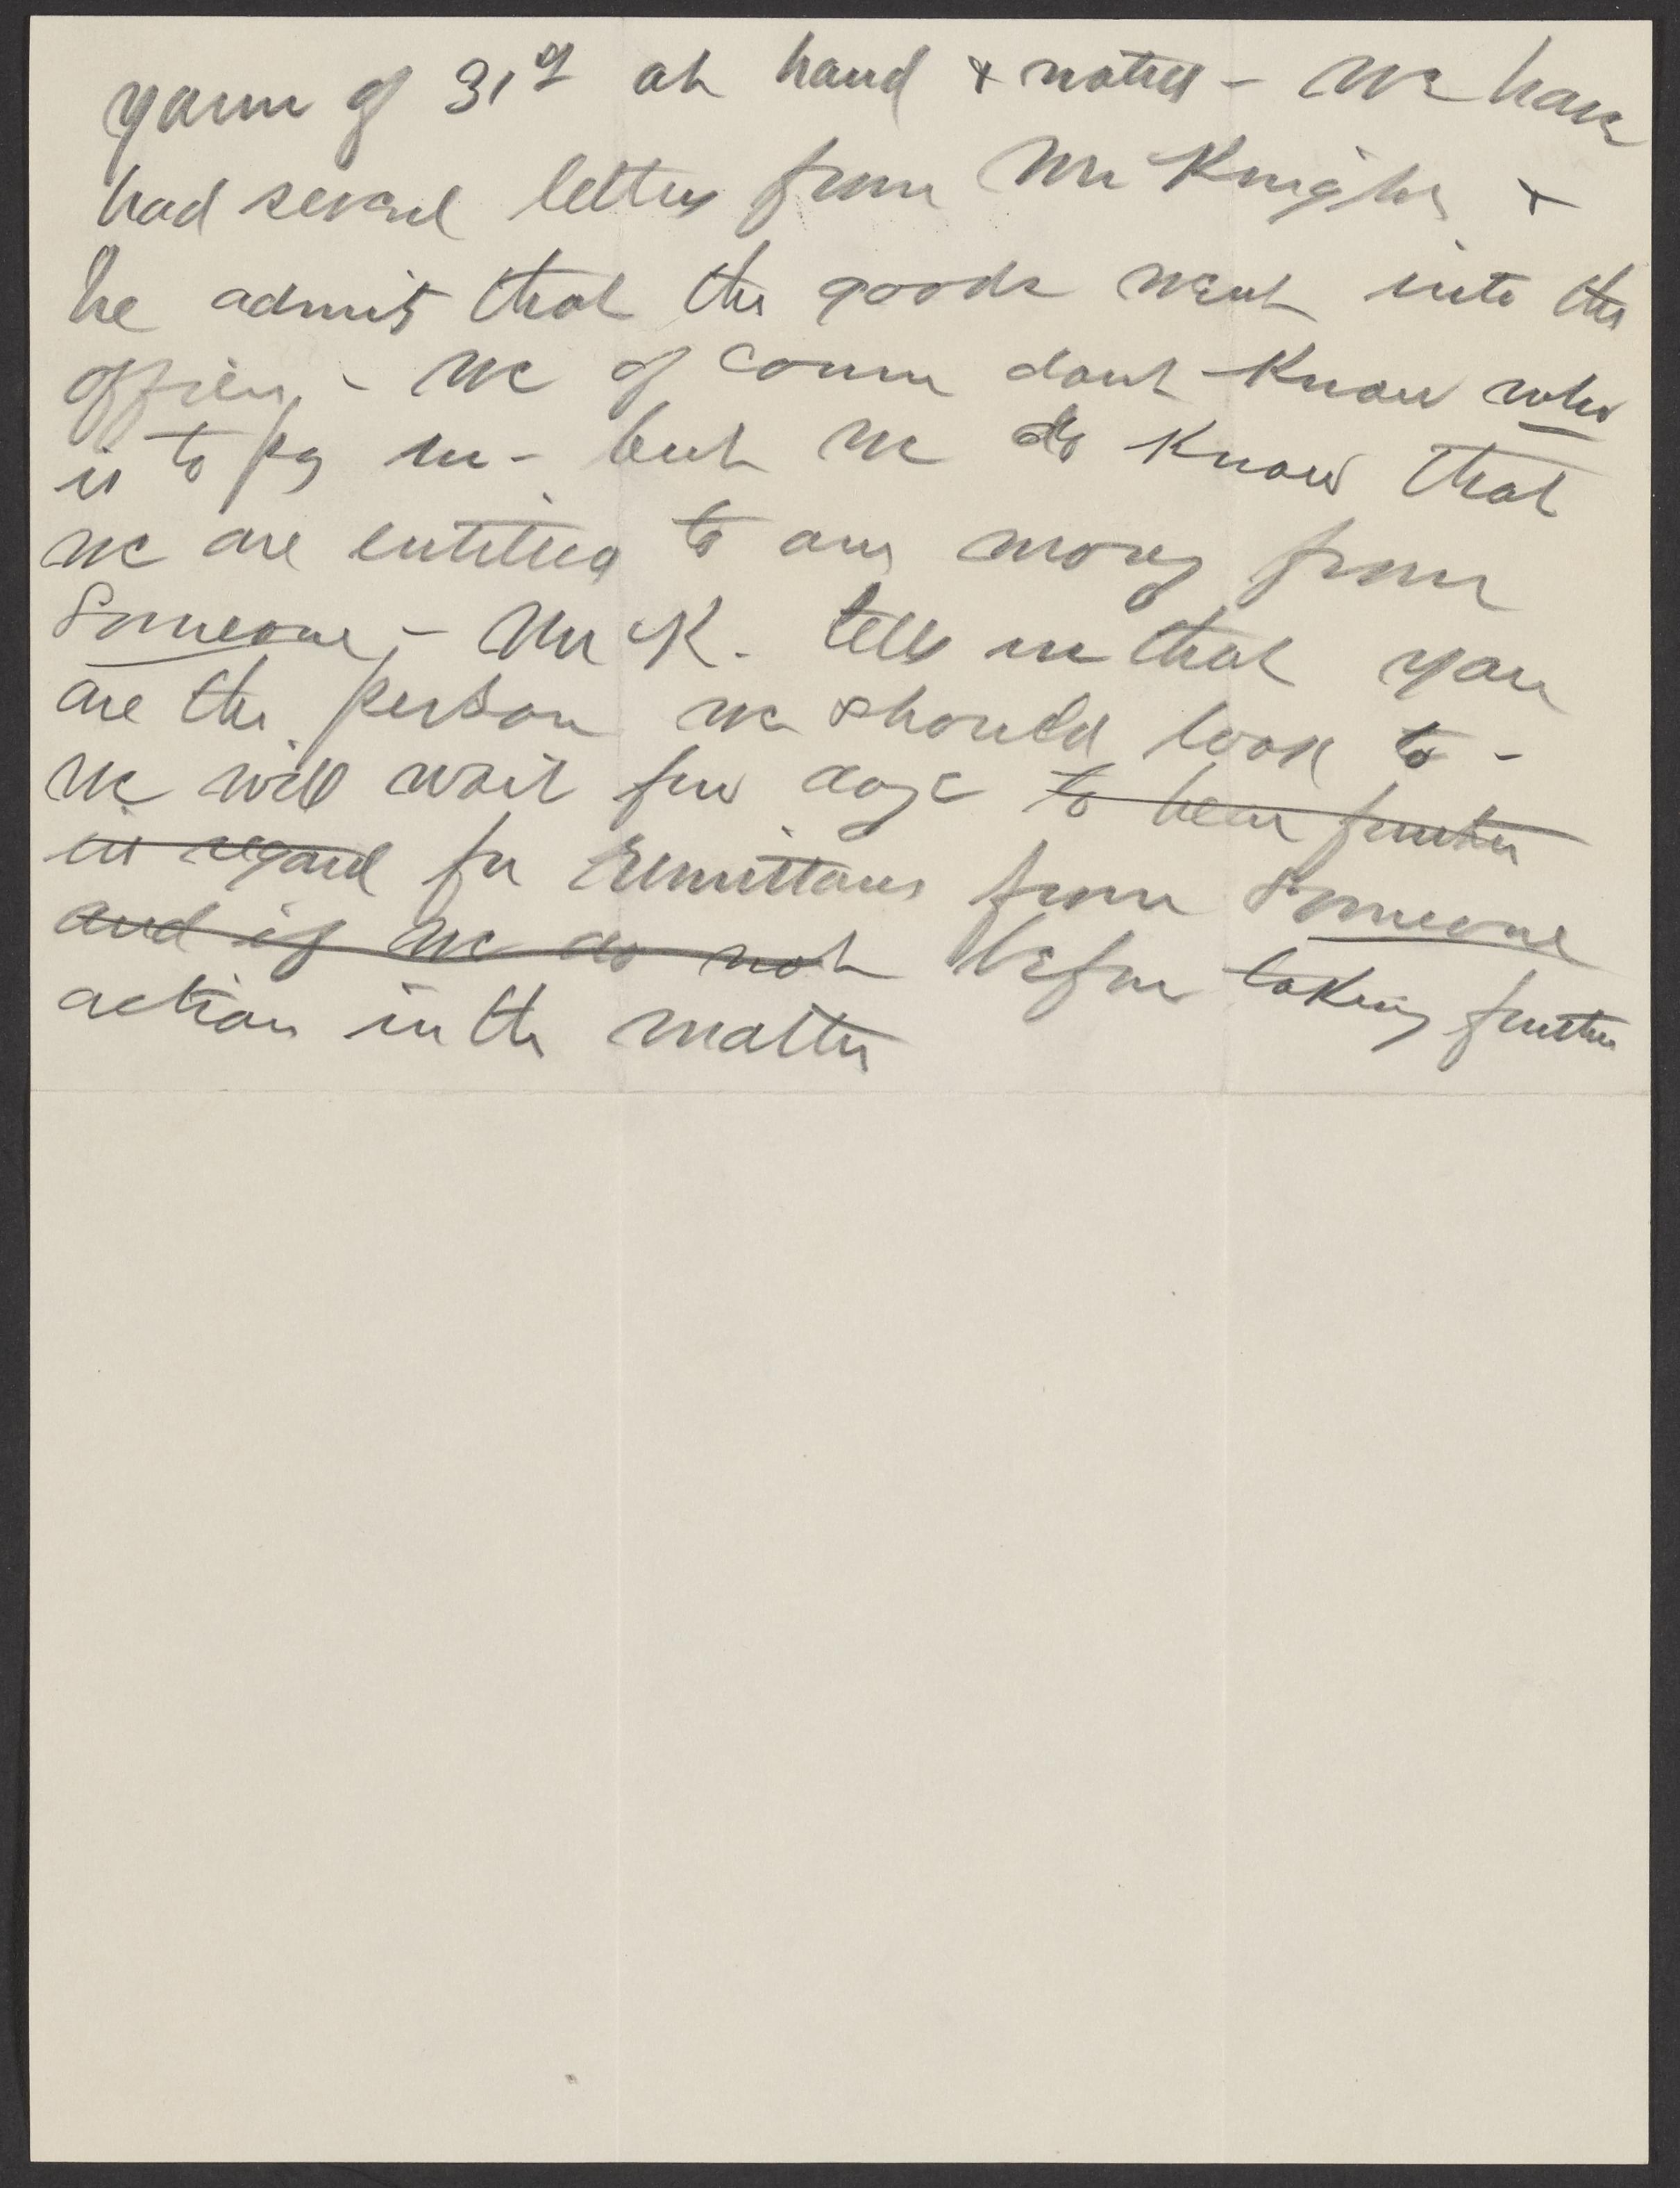 Yours of 31st at hand & noted - We have
had several letters from Mr Knight &
he admits that the goods went into the
offices - We of course dont know who
is to pay us - but we do know that
we are entitled to our money from
someone, - Mr K. tells us that you
are the person we should look to -
We will wait few days to hear further
in regard for remittance from someone
and if we do not before taking further
action in the matter